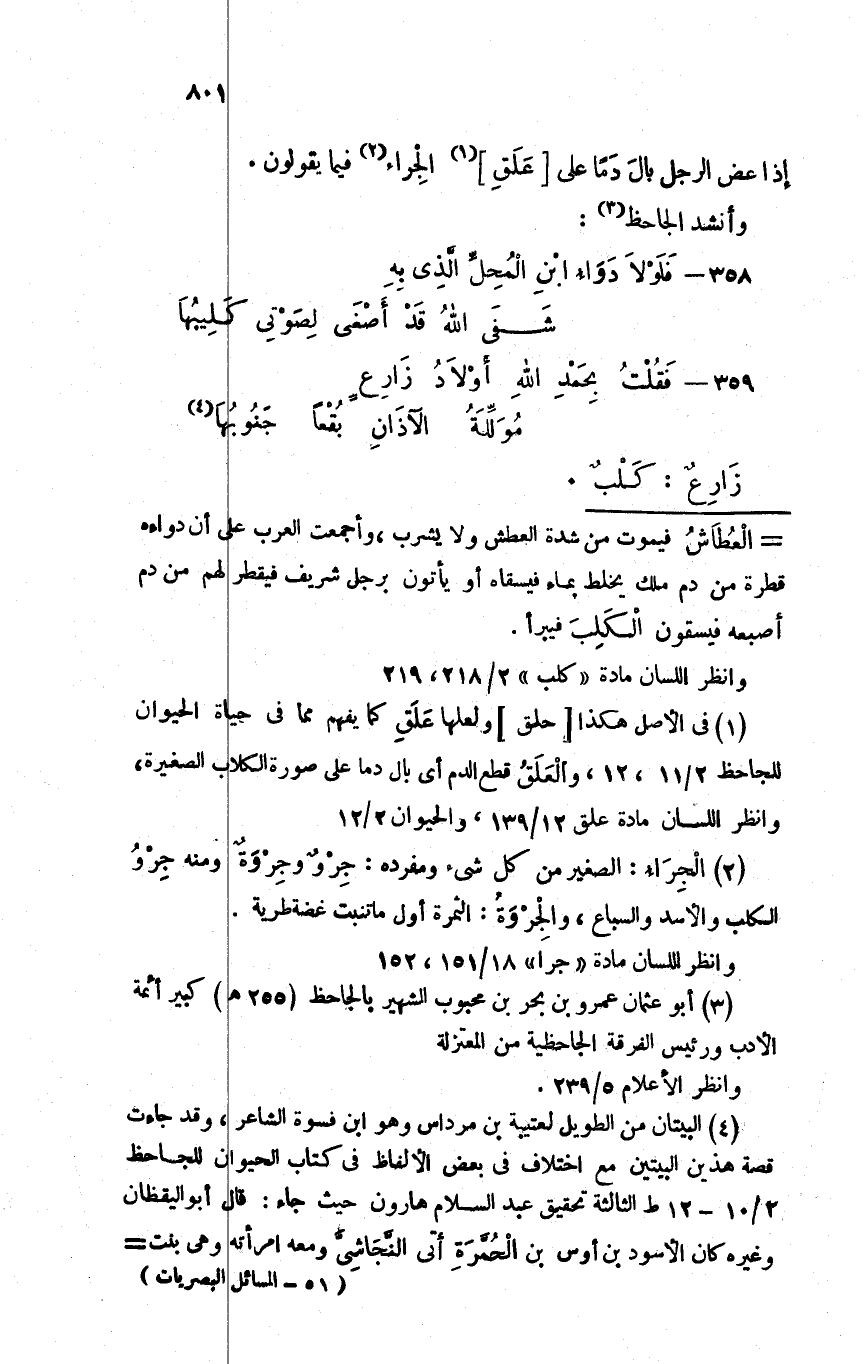 ٨٠١
إذا عض الرجل بالَ دَمًا على [ عَلَقِ ](١) الْجِراء(٢) فيما يقولون .
وأنشد الجاحظ(٣) :
٣٥٨ – فَلَوْلاَ دَوَاء ابْنِ الْمُحِلِّ الَّذِى بِهِ
شَـــفَى اللهُ قَدْ أَصْغَى لِصَوْتِي كَلِيبُهَا
٣٥٩ – فَقُلْتُ بِحَمْدِ اللهِ أَوْلاَدُ زَارِعٍ
مُوَلَّلَةُ الآذَانِ بُقْعًا جَنُوبُهَا(٤)
زَارِعٌ : كَلْبٌ .
= الْعُطَاشُ فيموت من شدة العطش ولا يشرب ، وأجمعت العرب على أن دواءه
قطرة من دم ملك يخلط بماء فيسقاه أو يأتون برجل شريف فيقطر لهم من دم
أصبعه فيسقون الْكَلِبَ فيبرأ .
وانظر اللسان مادة « كلب » ٢١٨/٢ ، ٢١٩
(١) فى الأصل هكذا [ حلق ] ولعلها عَلَقِ كما يفهم مما فى حياة الحيوان
للجاحظ ١١/٢ ، ١٢ ، والْعَلَقُ قطع الدم أى بال دما على صورة الكلاب الصغيرة ،
وانظر اللسـان مادة علق ١٣٩/١٢ ، والحيوان ١٢/٢
(٢) الْجِرَاء : الصغير من كل شىء ومفرده : جِرْوٌ وجِرْوَةٌ ومنه جِرْوُ
الكلب والأسد والسباع ، والْجِرْوَةُ : الثمرة أول ماتنبت غضة طرية .
وانظر اللسان مادة « جرا » ١٥١/١٨ ، ١٥٢
(٣) أبو عثمان عمرو بن بحر بن محبوب الشهير بالجاحظ (٢٥٥ هـ) كبير أئمة
الأدب ورئيس الفرقة الجاحظية من المعتزلة
وانظر الأعلام ٢٣٩/٥ .
(٤) البيتان من الطويل لعتيبة بن مرداس وهو ابن فسوة الشاعر ، وقد جاءت
قصة هذين البيتين مع اختلاف فى بعض الألفاظ فى كتاب الحيوان للجـاحظ
١٠/٢ – ١٢ ط الثالثة تحقيق عبد السـلام هارون حيث جاء : قال أبواليقظان
وغيره كان الأسود بن أوس بن الْحُمَّرَةِ أتى النَّجَاشِىَّ ومعه امرأته وهى بنت =
( ٥١ – المسائل البصريات )